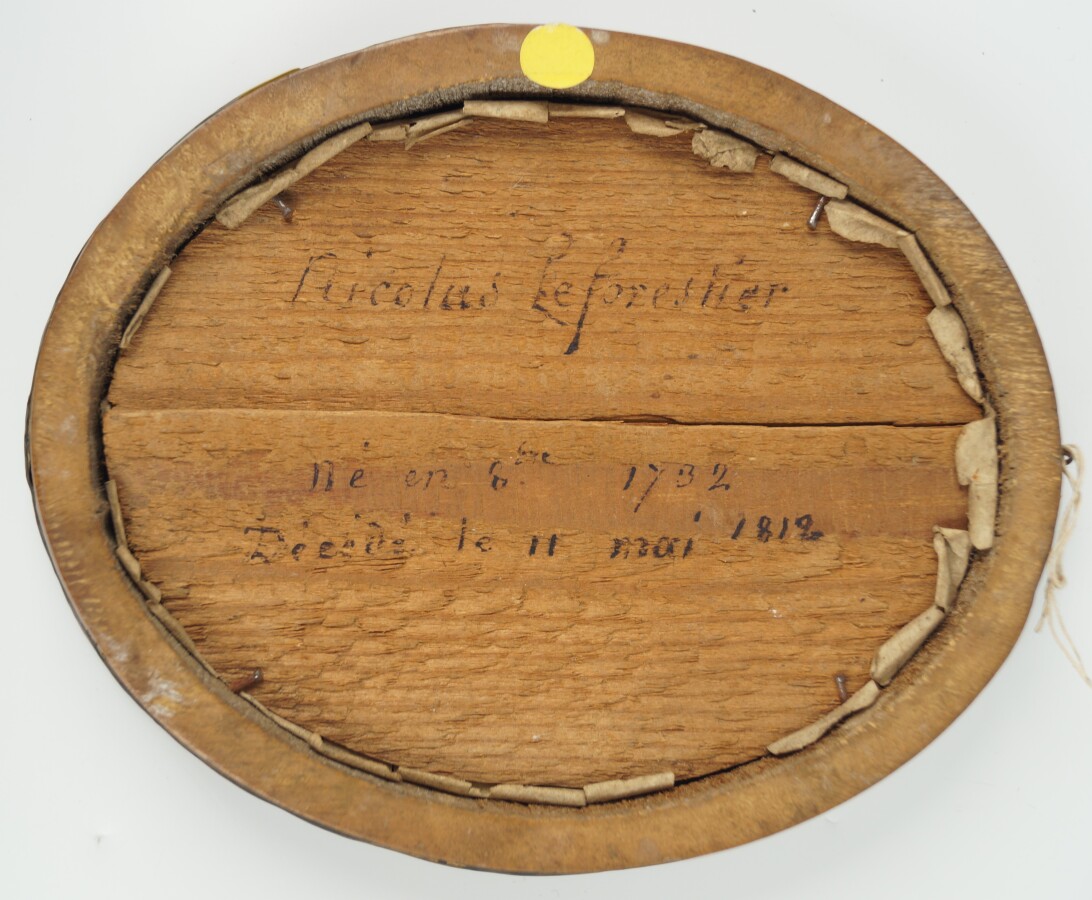 Nicolas Leforestier
Né en 6.bre 1732
Décédé le 11 mai 1812